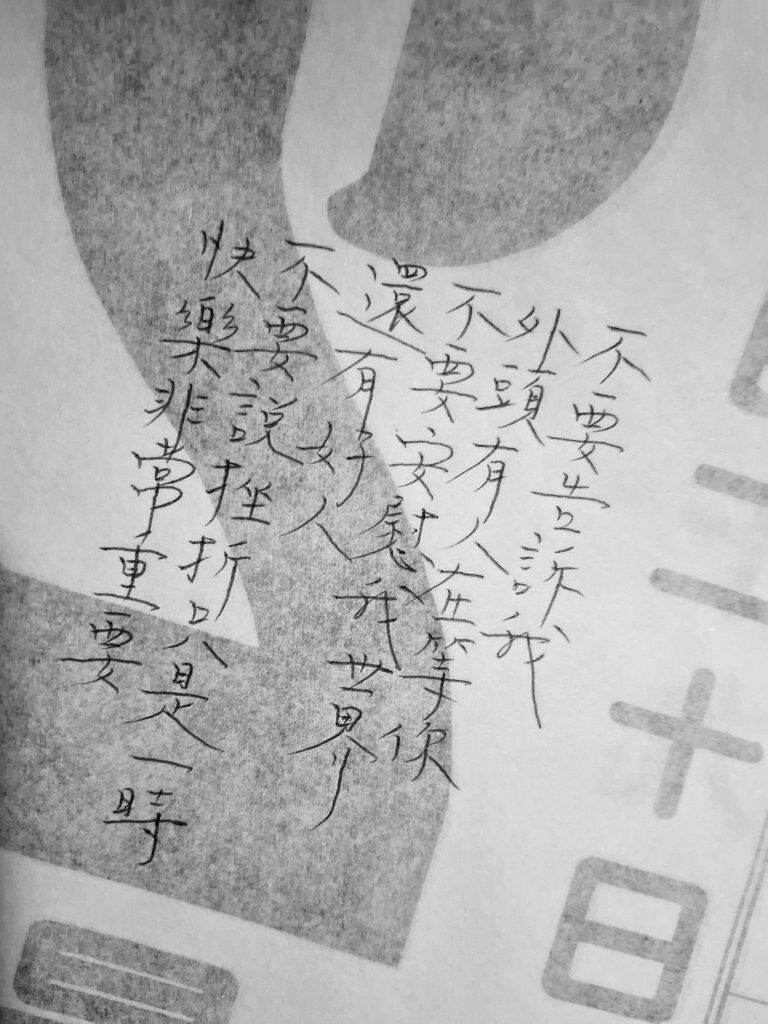 二十日
不要告訴我
外頭有人在等你
不要安慰我世界
還有好人
不要說挫折只是一時
快樂非常重要